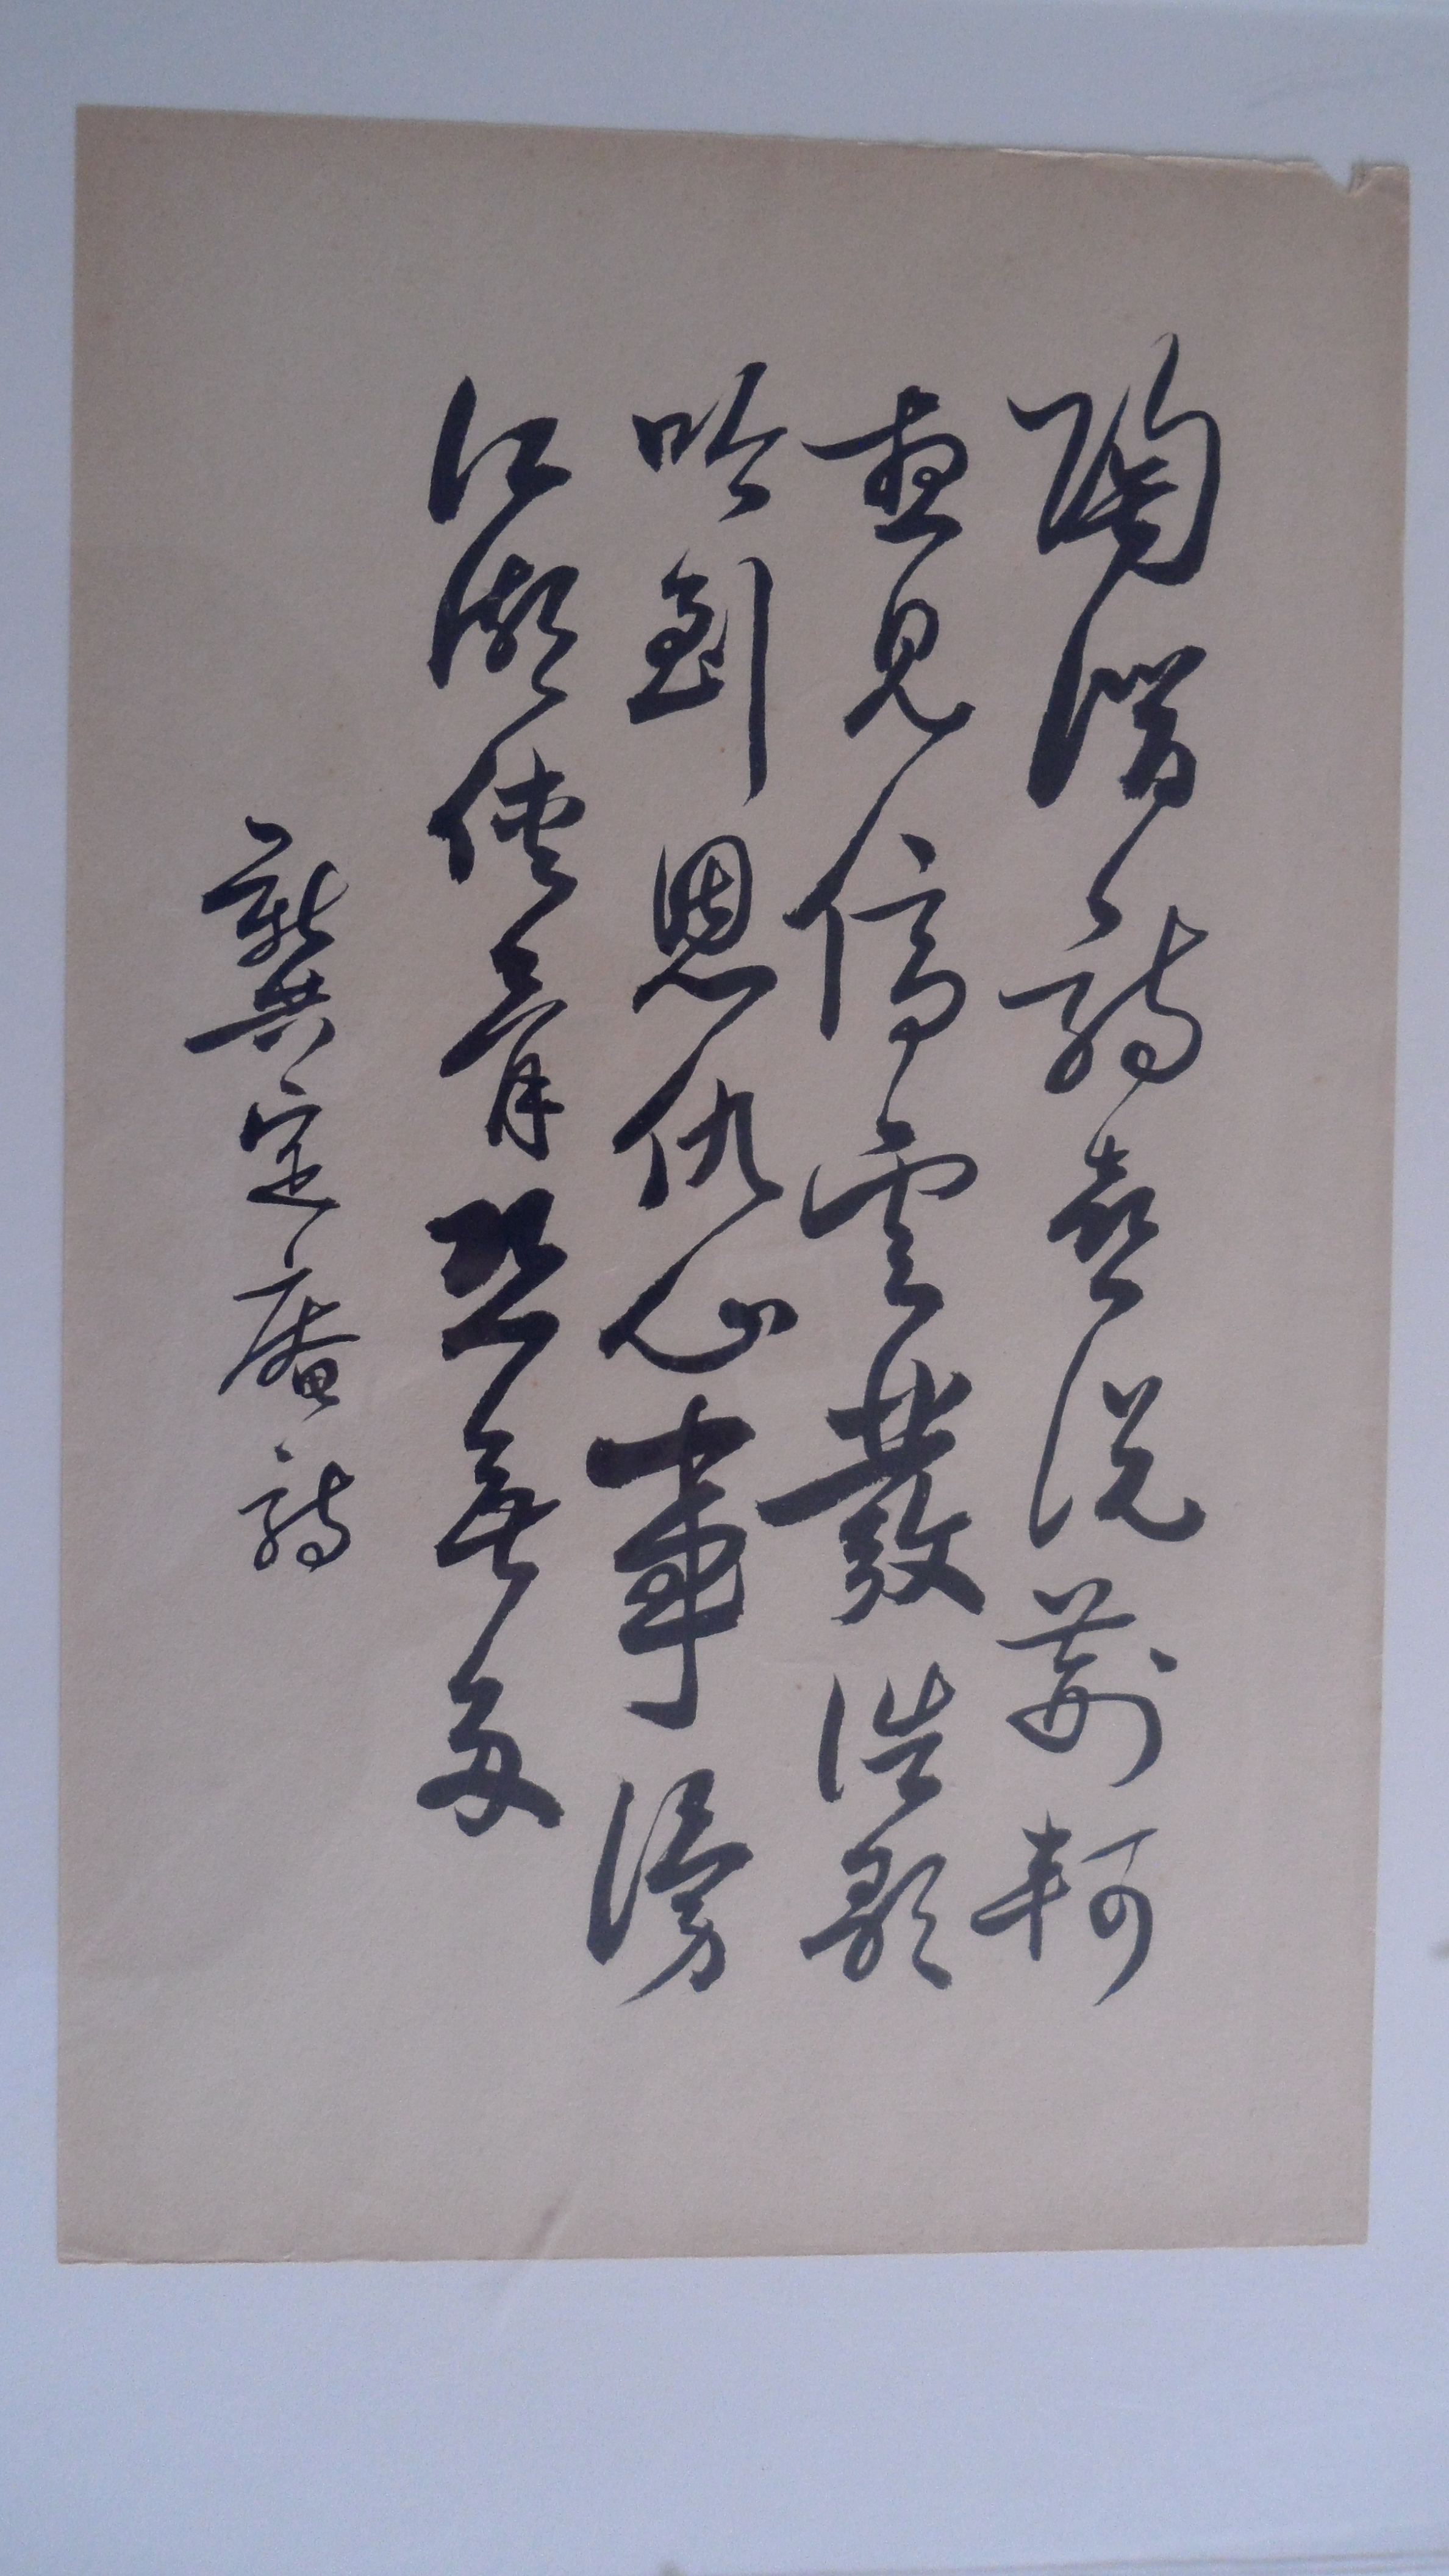 陶潛詩喜說荊軻
想見停雲發浩歌
吟到恩仇心事湧
江湖俠骨恐無多
龔定庵詩